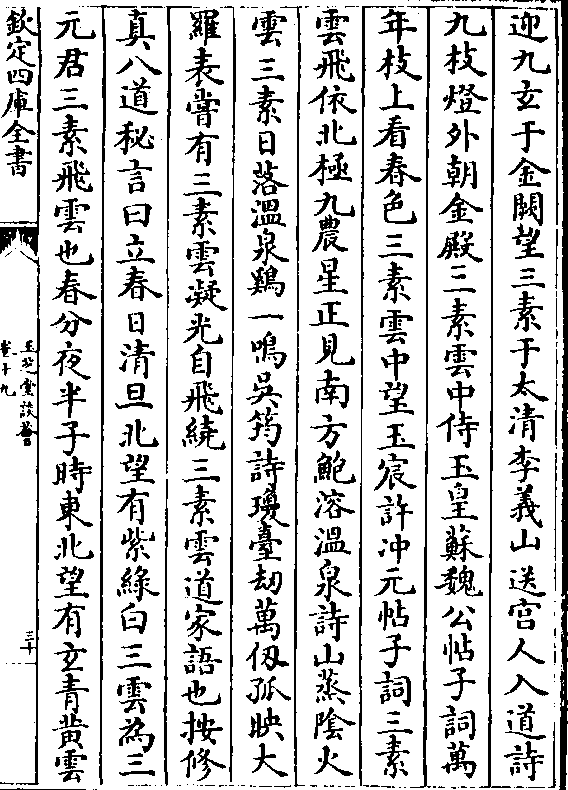 迎九玄于金闕望三素于太清李義山送宫人入道詩
九枝燈外朝金殿三素雲中侍玉皇蘇魏公帖子詞萬
年枝上看春色三素雲中望玉宸許冲元帖子詞三素
雲飛依北極九農星正見南方鮑溶溫泉詩山蒸陰火
雲三素日落溫泉鷄一鳴吳筠詩瓊臺劫萬仭孤映大
羅表嘗有三素雲凝光自飛繞三素雲道家語也按修
真八道秘言曰立春日清旦北望有紫綠白三雲為三
元君三素飛雲也春分夜半子時東北望有玄青黄雲
欽定四庫全書
玉芝堂談薈
卷十九
三十